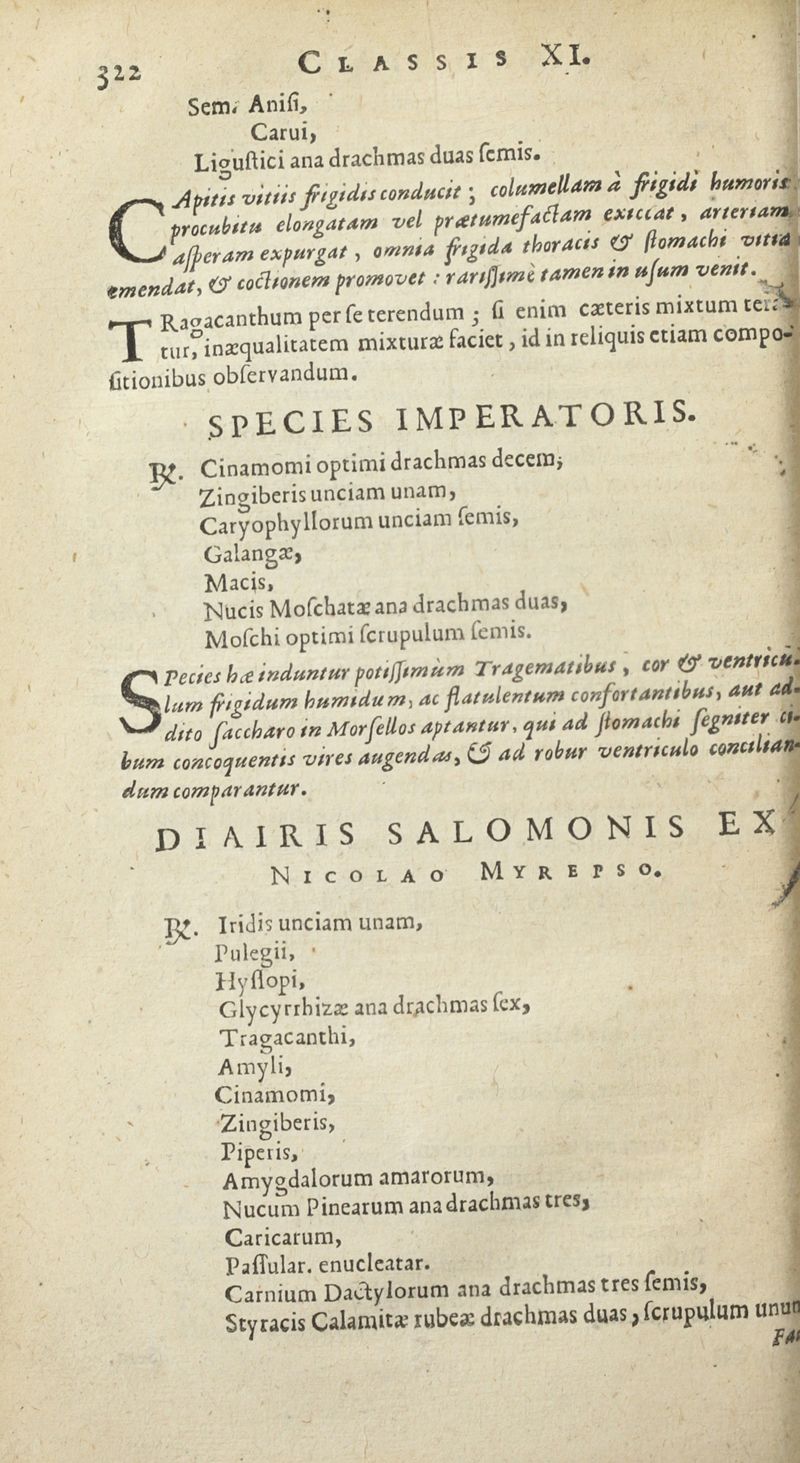 322 CLASSIS XI.
Sem. Anisi,
Carui,
Ligustici ana drachmas duas semis.
CApitis vitiis frigidis conducit; columellam à frigidi humoris
procubitu elongatam vel prætumefactam exiccat, arteriam
asperam expurgat, omnia frigida thoracis & stomachi vitia
emendat, & coctionem promovet: rarissimè tamen in usum venit.
TRagacanthum per se terendum; si enim cæteris mixtum tera-
tur, inæqualitatem mixturæ faciet, id in reliquis etiam compo-
sitionibus observandum.
SPECIES IMPERATORIS.
℞. Cinamomi optimi drachmas decem;
Zingiberis unciam unam,
Caryophyllorum unciam semis,
Galangæ,
Macis,
Nucis Moschatæ ana drachmas duas,
Moschi optimi scrupulum semis.
SPecies hæ induntur potissimùm Tragematibus, cor & ventricu-
lum frigidum humidum, ac flatulentum confortantibus, aut ad-
dito saccharo in Morsellos aptantur, qui ad stomachi segniter ci-
bum concoquentis vires augendas, & ad robur ventriculo concilian-
dum comparantur.
DIAIRIS SALOMONIS EX
NICOLAO MYREPSO.
℞. Iridis unciam unam,
Pulegii,
Hyssopi,
Glycyrrhizæ ana drachmas sex,
Tragacanthi,
Amyli,
Cinamomi,
Zingiberis,
Piperis,
Amygdalorum amarorum,
Nucum Pinearum ana drachmas tres,
Caricarum,
Passular. enucleatar.
Carnium Dactylorum ana drachmas tres semis,
Styracis Calamitæ rubeæ drachmas duas, scrupulum unum